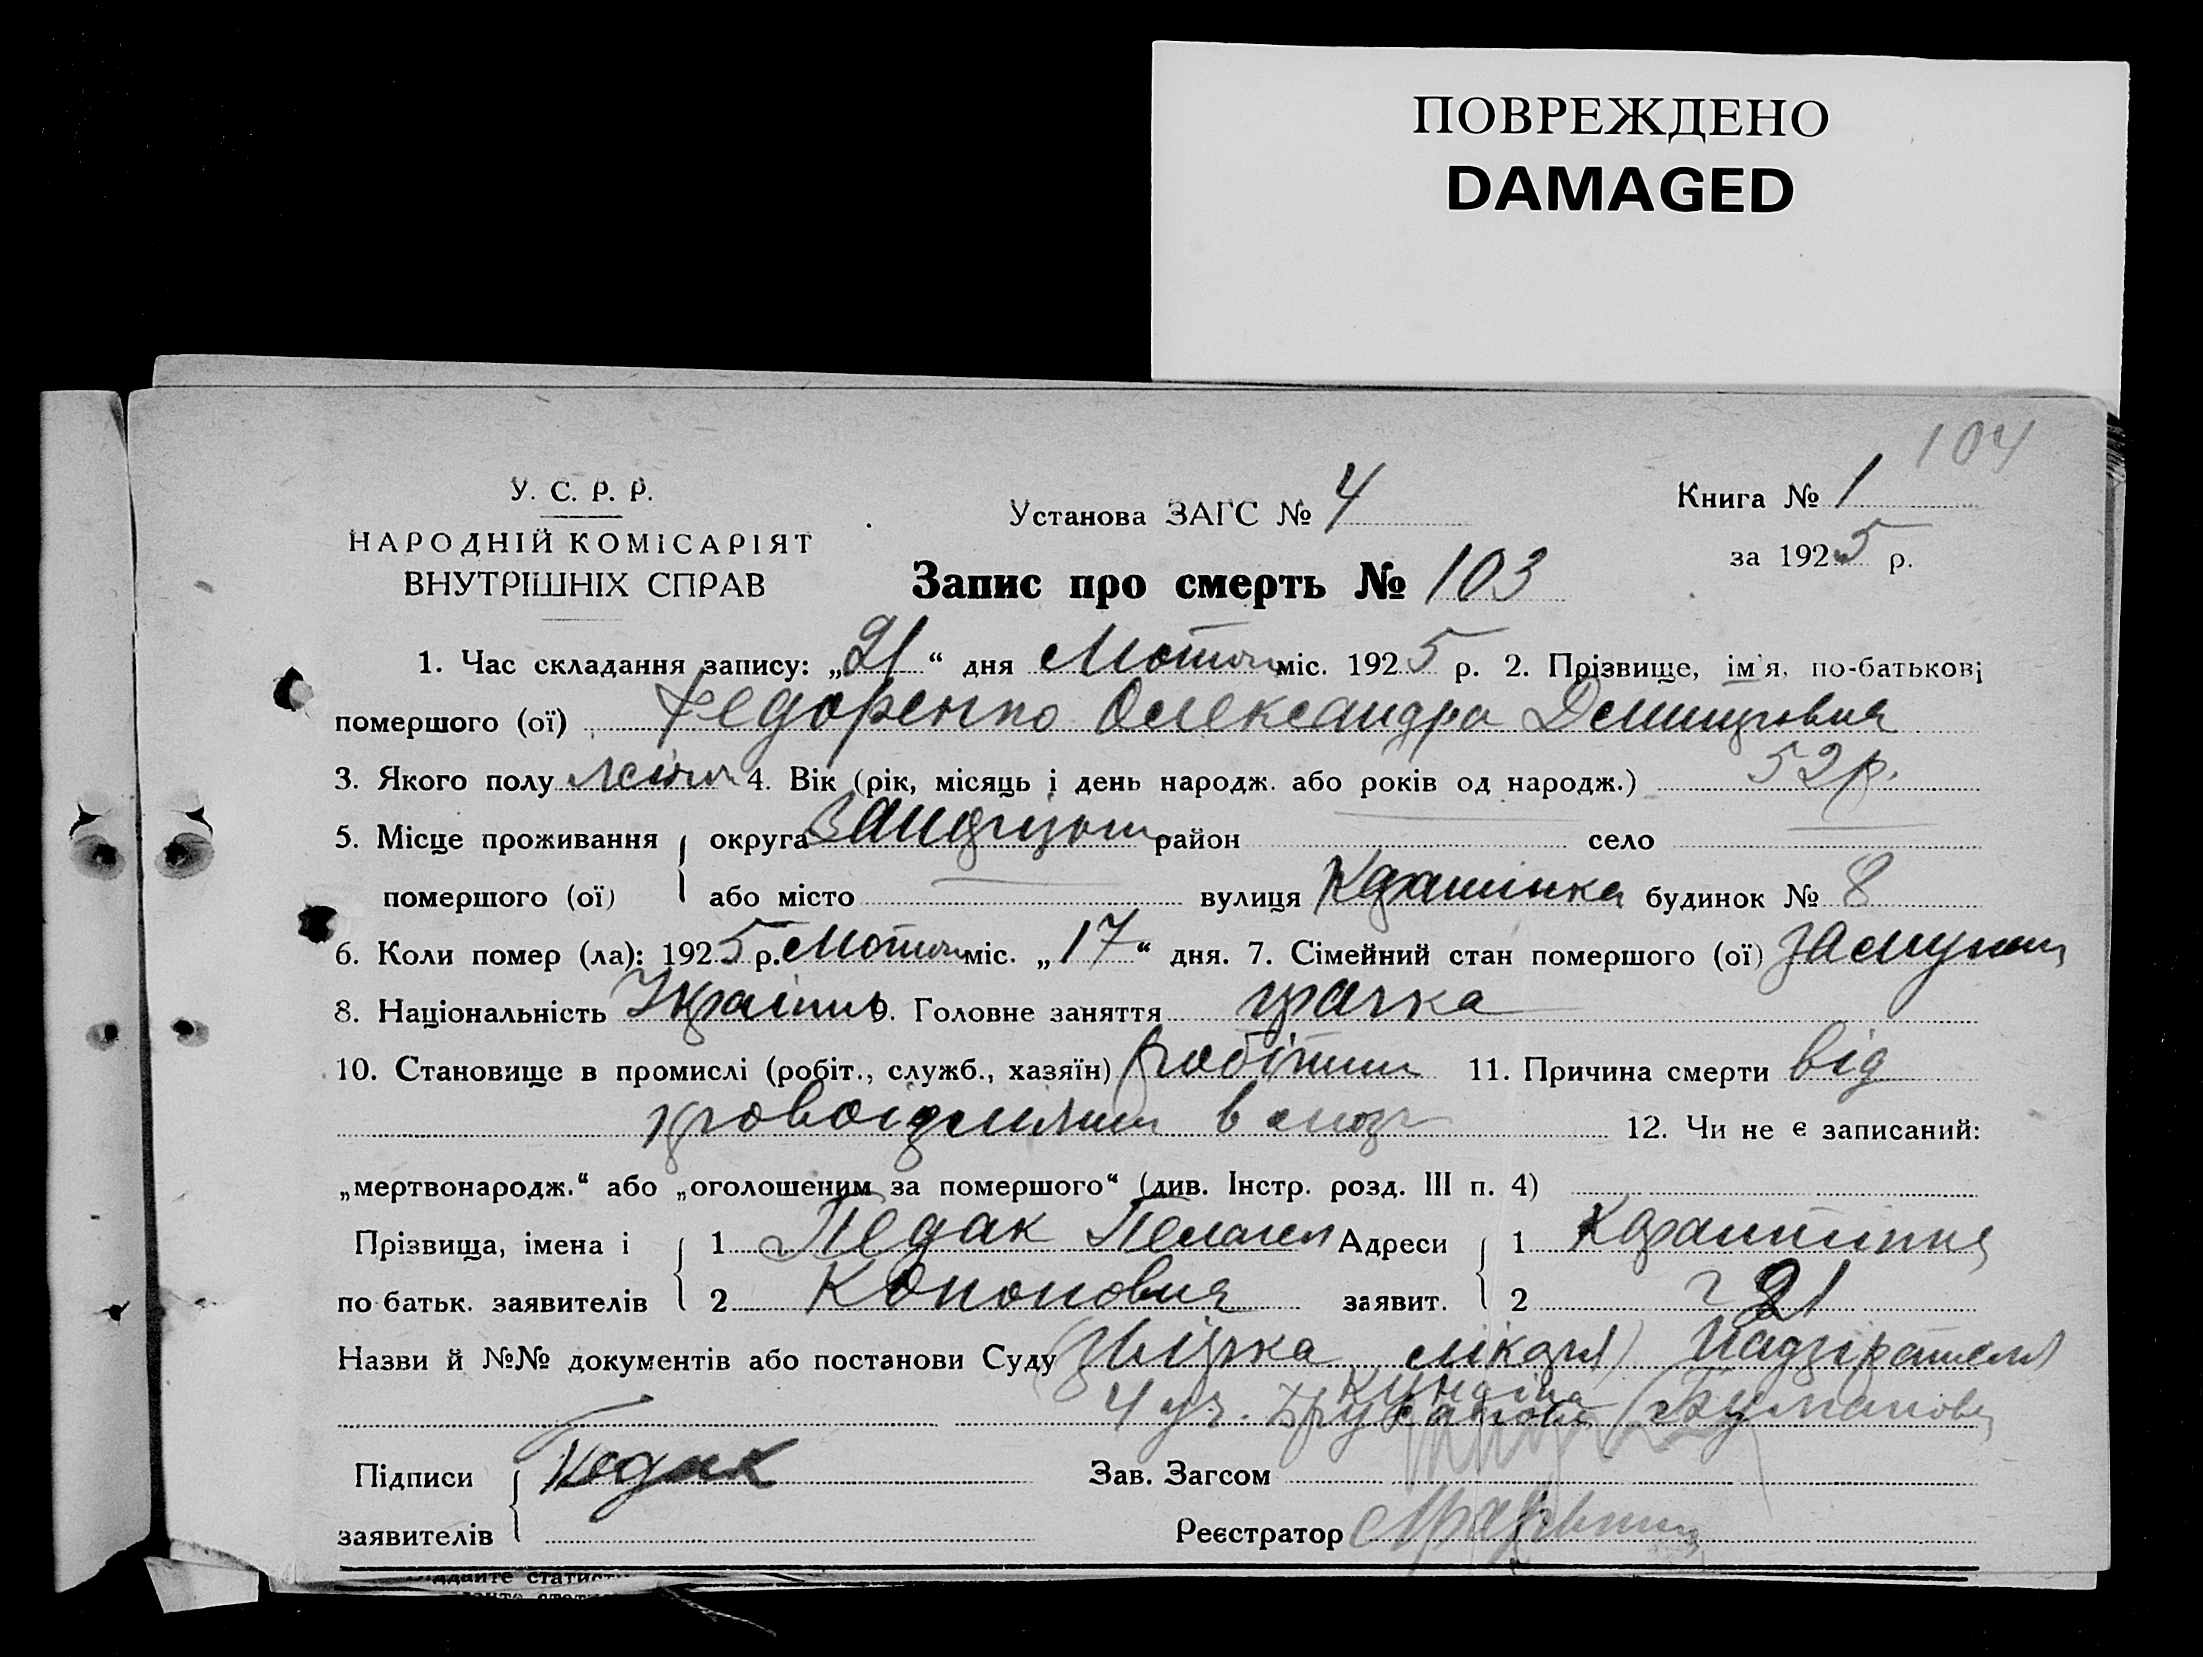 ПОВРЕЖДЕНО
DAMAGED
104
У. С. Р. Р.
НАРОДНІЙ КОМІСАРІЯТ
ВНУТРІШНІХ СПРАВ
Установа ЗАГС № 4
Книга № 1
за 1925 р.
Запис про смерть № 103
1. Час складання запису: „21“ дня Лютого міс. 1925 р. 2. Прізвище, ім'я, по-батькові
помершого (ої) Федоренко Олександра
3. Якого полу жіноч 4. Вік (рік, місяць і день народж. або років од народж.) 52 р.
5. Місце проживання округа район село
помершого (ої) або місто вулиця будинок № 8
6. Коли помер (ла): 1925 р. Лютого міс. „17“ дня. 7. Сімейний стан помершого (ої)
8. Національність 9. Головне заняття прачка
10. Становище в промислі (робіт., служб., хазяїн) 11. Причина смерти від
в 12. Чи не є записаний:
„мертвонародж.“ або „оголошеним за помершого“ (див. Інстр. розд. III п. 4)
Прізвища, імена і 1 Педак Пелагея Адреси 1
по батьк. заявителів 2 Кононовна заявит. 2 21
Назви й №№ документів або постанови Суду лікаря
4 уч.
Підписи Педак Зав. Загсом
заявителів Реєстратор